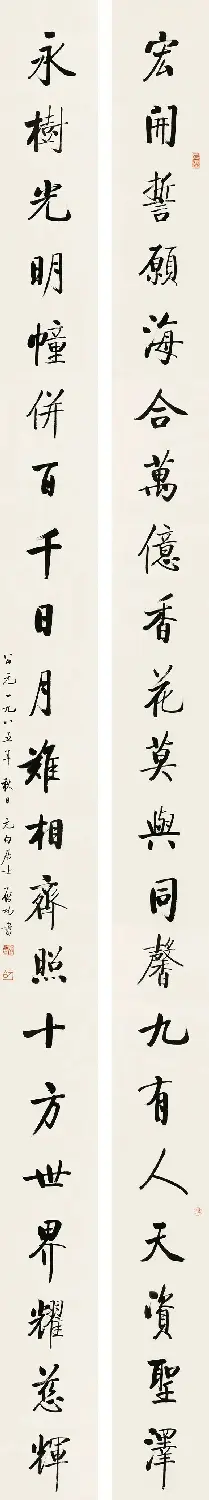 宏開誓願海合萬億香花莫與同馨九有人天資聖澤
永樹光明幢併百千日月難相齊照十方世界耀慈輝
公元一九八五年秋日元白居士啟功書